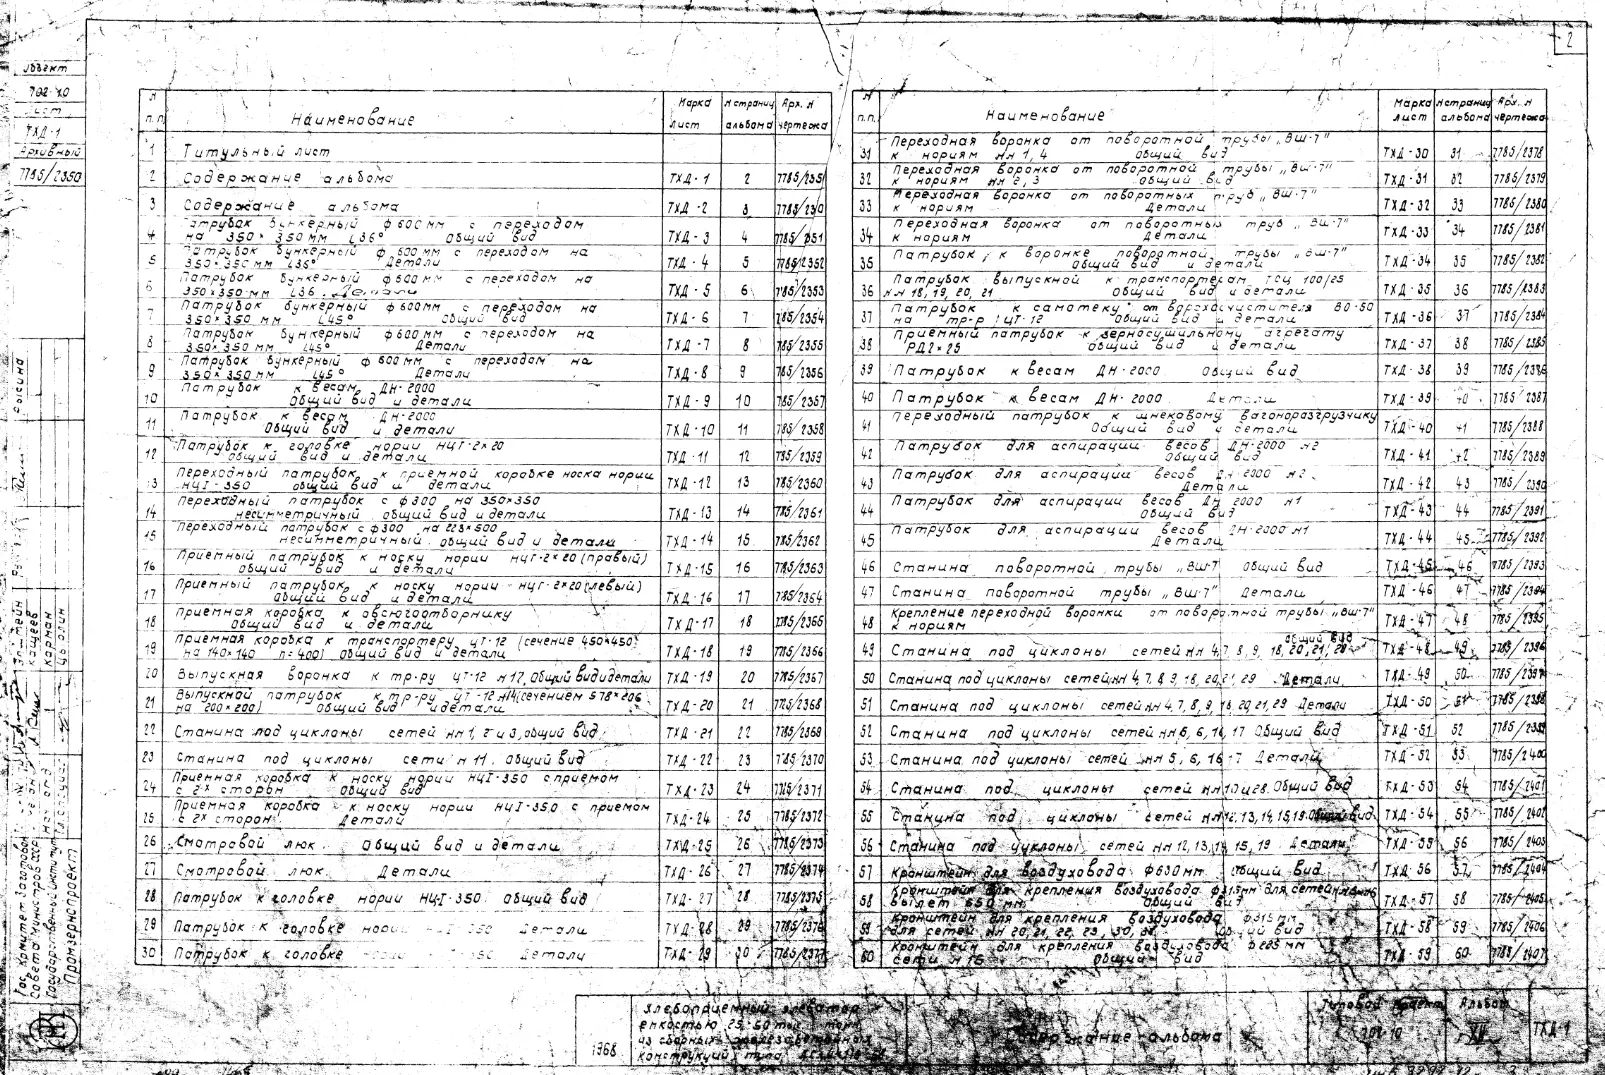 2
Объект
702-10
Лист
ТХД-1
Архивный
7785/2350
N п.п. Наименование Марка лист N страниц альбома Арх. N чертежа
1 Титульный лист
2 Содержание альбома ТХД-1 2 7785/2350
3 Содержание альбома ТХД-2 3
4 Патрубок бункерный ф 600 мм с переходом
на 350×350 мм ∠36° Общий вид ТХД-3 4 7785/2351
5 Патрубок бункерный ф 600 мм с переходом на
350×350 мм ∠36° Детали ТХД-4 5 7785/2352
6 Патрубок бункерный ф 600 мм с переходом на
350×350 мм ∠36 Детали ТХД-5 6 7785/2353
7 Патрубок бункерный ф 600мм с переходом на
350×350 мм ∠45° Общий вид ТХД-6 7 7785/2354
8 Патрубок бункерный ф 600 мм с переходом на
350×350 мм ∠45° Детали ТХД-7 8 7785/2355
9 Патрубок бункерный ф 600 мм с переходом на
350×350 мм ∠45° Детали ТХД-8 9 7785/2356
10 Патрубок к весам ДН-2000
Общий вид и детали ТХД-9 10 7785/2357
11 Патрубок к весам ДН-2000
Общий вид и детали ТХД-10 11 7785/2358
12 Патрубок к головке нории НЦГ-2×20
Общий вид и детали ТХД-11 12 7785/2359
13 Переходный патрубок к приемной коробке носка нории
НЦГ-350 общий вид и детали ТХД-12 13 7785/2360
14 Переходный патрубок с ф300 на 350×350
несимметричный общий вид и детали ТХД-13 14 7785/2361
15 Переходный патрубок с ф300 на 225×500
несимметричный общий вид и детали ТХД-14 15 7785/2362
16 Приемный патрубок к носку нории НЦГ-2×20 (правый)
общий вид и детали ТХД-15 16 7785/2363
17 Приемный патрубок к носку нории НЦГ-2×20 (левый)
общий вид и детали ТХД-16 17 7785/2364
18 Приемная коробка к овсюгоотборнику
общий вид и детали ТХД-17 18 7785/2365
19 Приемная коробка к транспортеру ЦТ-12 (сечение 450×450
на 140×140 n=400) общий вид и детали ТХД-18 19 7785/2366
20 Выпускная воронка к тр-ру ЦТ-12 N12, Общий вид и детали ТХД-19 20 7785/2367
21 Выпускной патрубок к тр-ру ЦТ-12 N14 (сечением 578×206
на 200×200) Общий вид и детали ТХД-20 21 7785/2368
22 Станина под циклоны сетей NN 1, 2 и 3, общий вид ТХД-21 22 7785/2369
23 Станина под циклоны сети N 11. общий вид ТХД-22 23 7785/2370
24 Приемная коробка к носку нории НЦГ-350 с приемом
с 2х сторон общий вид ТХД-23 24 7785/2371
25 Приемная коробка к носку нории НЦГ-350 с приемом
с 2х сторон. Детали ТХД-24 25 7785/2372
26 Смотровой люк. Общий вид и детали ТХД-25 26 7785/2373
27 Смотровой люк. Детали ТХД-26 27 7785/2374
28 Патрубок к головке нории НЦГ-350 общий вид ТХД-27 28 7785/2375
29 Патрубок к головке нории 350 Детали ТХД-28 29 7785/2376
30 Патрубок к головке Детали ТХД-29 30 7785/2377
N п.п. Наименование Марка лист N страниц альбома Арх. N чертежа
31 Переходная воронка от поворотной трубы „ВШ-7"
к нориям NN 1, 4 общий вид ТХД-30 31 7785/2378
32 Переходная воронка от поворотной трубы „ВШ-7"
к нориям NN 2, 3 общий вид ТХД-31 32 7785/2379
33 Переходная воронка от поворотных труб „ВШ-7"
к нориям Детали ТХД-32 33 7785/2380
34 Переходная воронка от поворотных труб „ВШ-7"
к нориям Детали ТХД-33 34 7785/2381
35 Патрубок к воронке поворотной трубы „ВШ-7"
общий вид и детали ТХД-34 35 7785/2382
36 Патрубок выпускной к транспортерам ТСЦ 100/25
NN 18, 19, 20, 21 Общий вид и детали ТХД-35 36 7785/2383
37 Патрубок к самотеку от ворохоочистителя ВО-50
на тр-р ЦТ-12 Общий вид и детали ТХД-36 37 7785/2384
38 Приемный патрубок к зерносушильному агрегату
РД2×25 Общий вид и детали ТХД-37 38 7785/2385
39 Патрубок к весам ДН-2000 Общий вид ТХД-38 39 7785/2386
40 Патрубок к весам ДН-2000 Детали ТХД-39 40 7785/2387
41 Переходный патрубок к шнековому вагоноразгрузчику
Общий вид и детали ТХД-40 41 7785/2388
42 Патрубок для аспирации весов ДН-2000 N2
Общий вид ТХД-41 42 7785/2389
43 Патрубок для аспирации весов ДН-2000 N2
Детали ТХД-42 43 7785/2390
44 Патрубок для аспирации весов ДН-2000 N1
Общий вид ТХД-43 44 7785/2391
45 Патрубок для аспирации весов ДН-2000 N1
Детали ТХД-44 45 7785/2392
46 Станина поворотной трубы „ВШ-7 Общий вид ТХД-45 46 7785/2393
47 Станина поворотной трубы „ВШ-7" Детали ТХД-46 47 7785/2394
48 Крепление переходной воронки от поворотной трубы „ВШ-7"
к нориям общий вид ТХД-47 48 7785/2395
49 Станина под циклоны сетей NN 4, 7, 8, 9, 18, 20, 21, 29 ТХД-48 49 7785/2396
50 Станина под циклоны сетей NN 4, 7, 8, 9, 18, 20, 21, 29 Детали ТХД-49 50 7785/2397
51 Станина под циклоны сетей NN 4, 7, 8, 9, 18, 20, 21, 29 Детали ТХД-50 51 7785/2398
52 Станина под циклоны сетей NN 5, 6, 16, 17 Общий вид ТХД-51 52 7785/2399
53 Станина под циклоны сетей NN 5, 6, 16, 17 Детали ТХД-52 53 7785/2400
54 Станина под циклоны сетей NN 10 и 28. Общий вид ТХД-53 54 7785/2401
55 Станина под циклоны сетей NN 12, 13, 14, 15, 19 Общий вид ТХД-54 55 7785/2402
56 Станина под циклоны сетей NN 12, 13, 14, 15, 19 Детали ТХД-55 56 7785/2403
57 Кронштейн для воздуховода ф630мм общий вид ТХД-56 57 7785/2404
58 Кронштейн для крепления воздуховода ф315мм для сетей
вылет 650 мм Общий вид ТХД-57 58 7785/2405
59 Кронштейн для крепления воздуховода ф315 мм
для сетей NN 20, 21, 22, 23, 30, 31 Общий вид ТХД-58 59 7785/2406
60 Кронштейн для крепления воздуховода ф225 мм
сети N 16 Общий вид ТХД-59 60 7785/2407
Гос. Комитет заготовок
Совета Министров СССР
Государственный институт
Промзернопроект
Кащеев
Карман
Цыпалин
Рысина
1968
Хлебоприемный элеватор
емкостью 25-50 тыс. тонн
из сборных железобетонных
конструкций типа
Содержание альбома
Типовой проект
702-10
Альбом
XII
ТХД-1